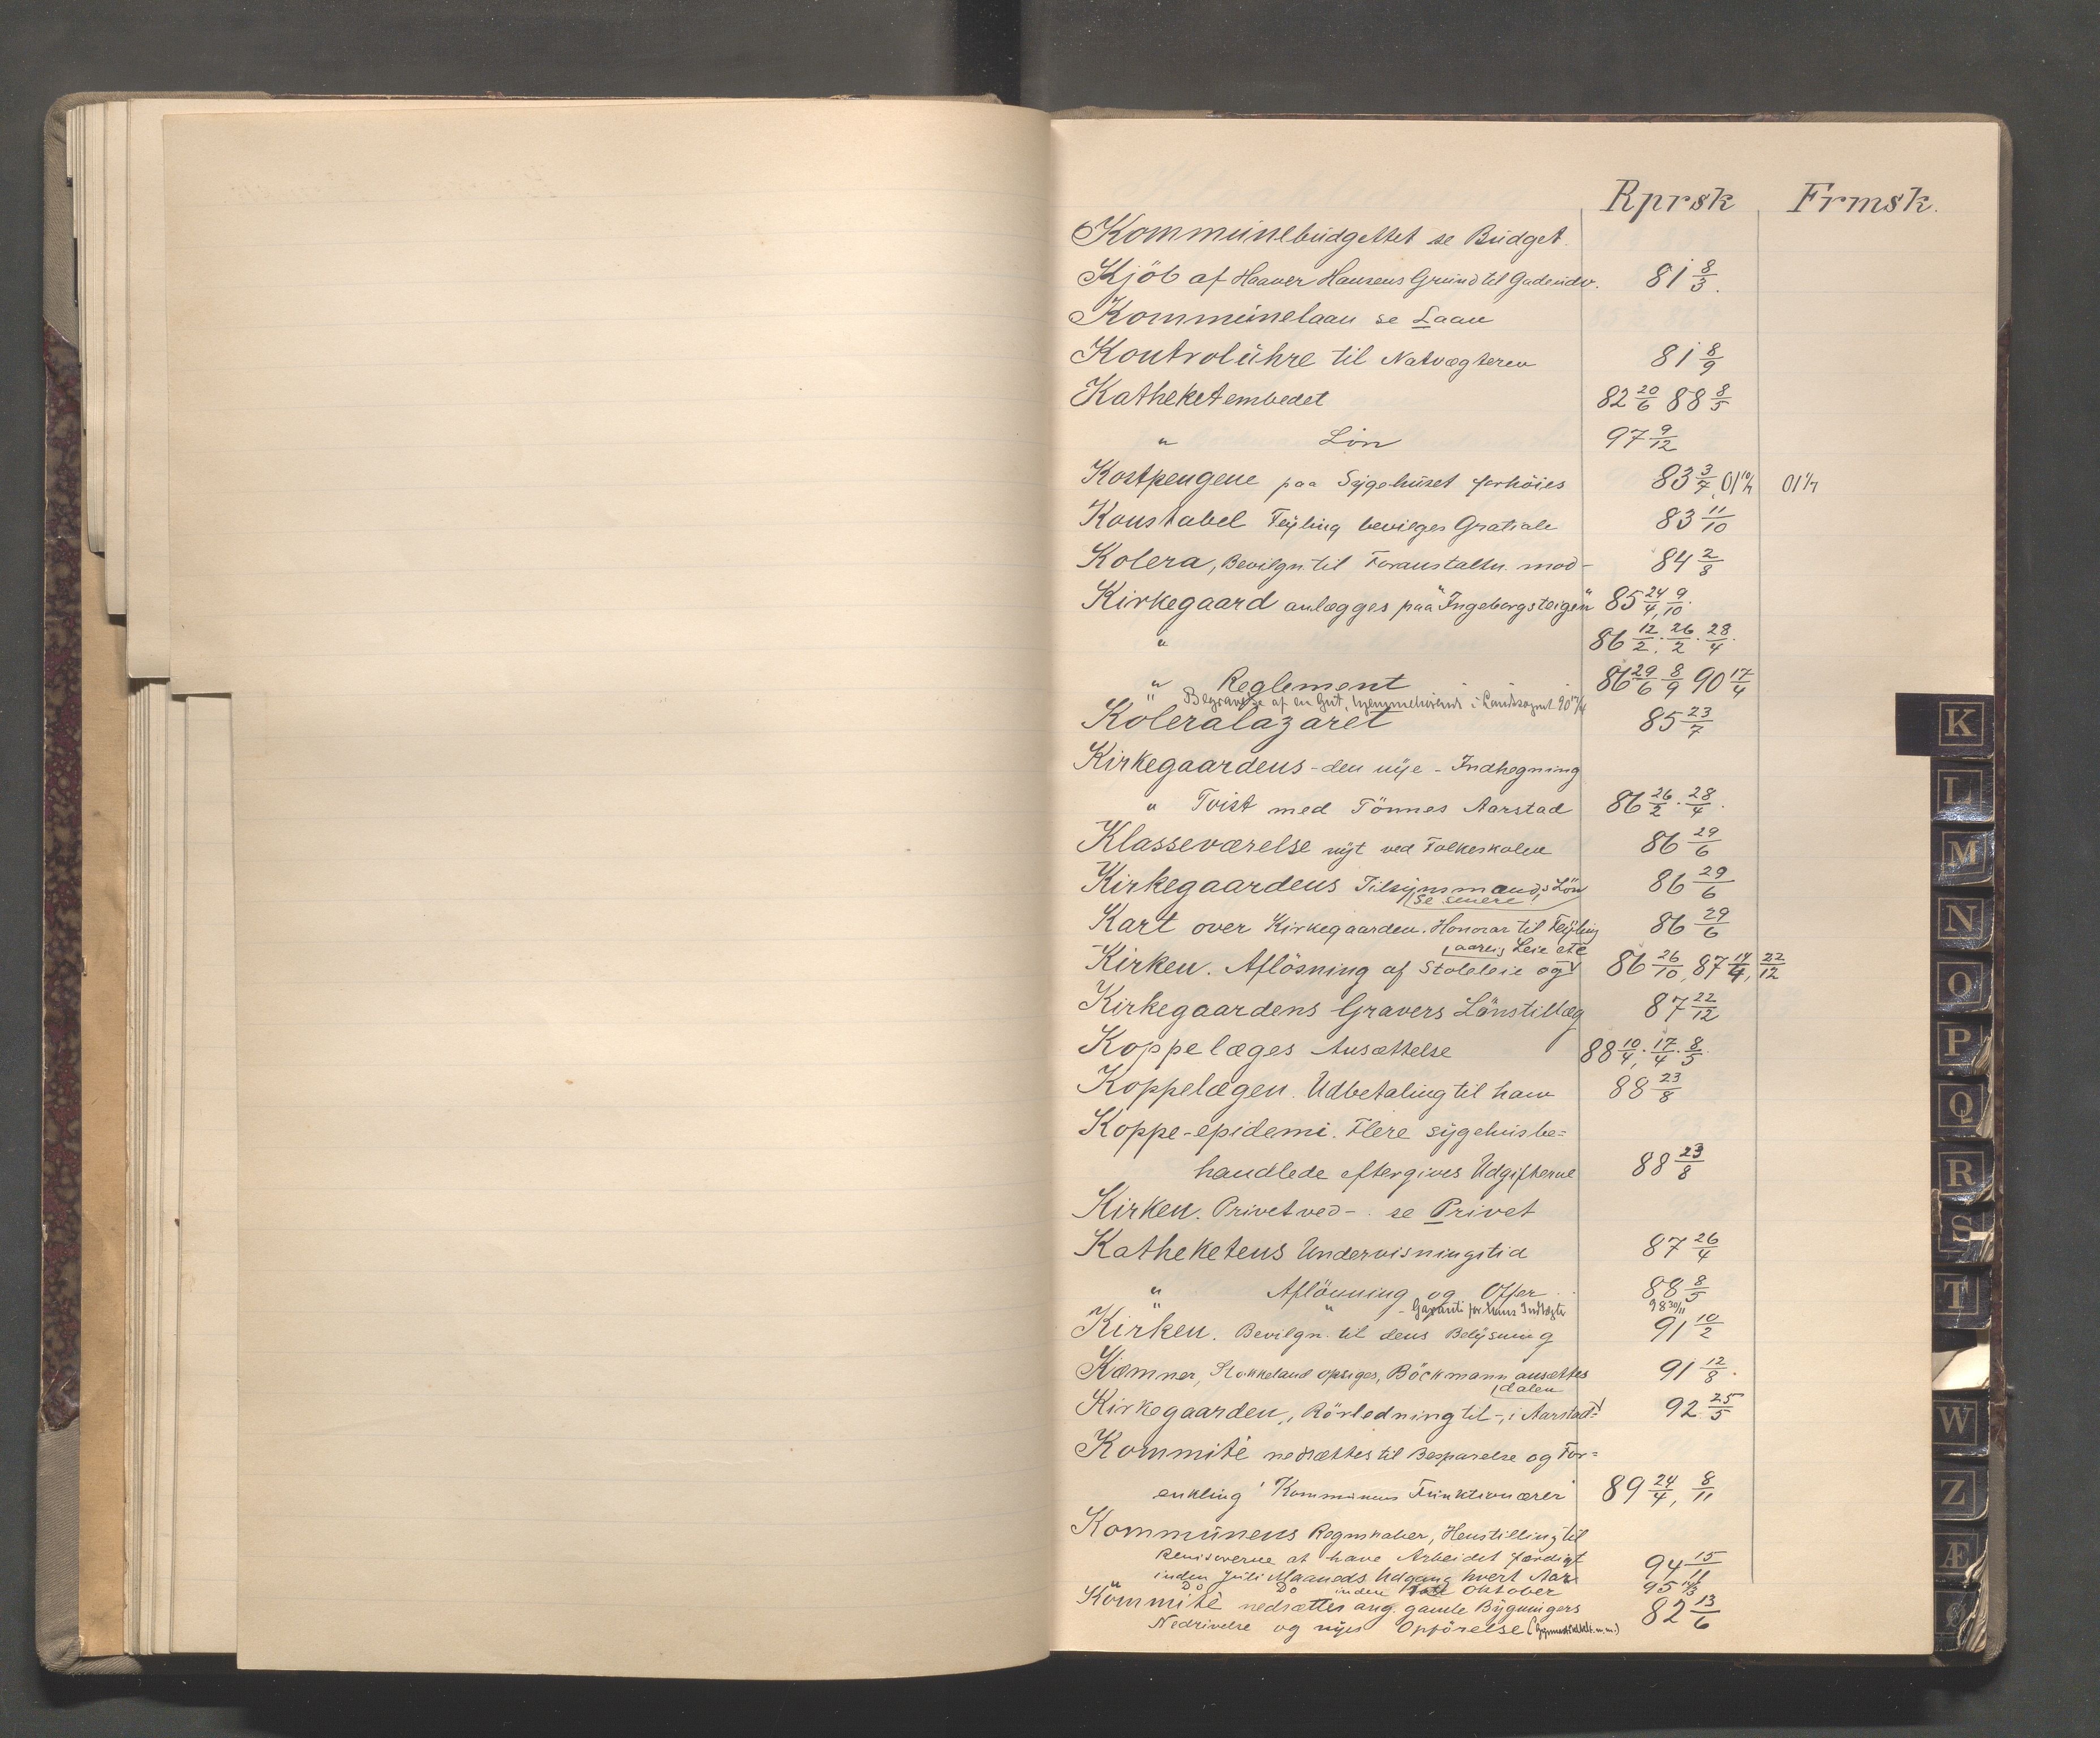 Rprsk Frmsk.
Kommunebudgettet se Budget.
Kjöb af Haaver Hansens Grund til Gadeudv. 81 8/3.
Kommunelaan se Laan
Kontrolühre til Natvægteren 81 8/9
Katheketembedet 82 20/6 88 8/5
" Lön 97 9/12
Kostpengene paa Sygehuset forhöies 83 3/4, 01 10/7 01 1/7
Konstabel Feyling bevilges Gratiale 83 11/10
Kolera, Bevilgn. til Foranstaltn. mod - 84 2/8
Kirkegaard anlægges paa "Ingeborgsteigen" 85 24/4, 9/10.
" 86 12/2. 26/2. 28/4.
" Reglement 86 29/6 8/9 90 17/4
" Begravelse af en Gut, hjemmehörende i Landsognet 90 17/4
Koleralazaret 85 23/7
Kirkegaardens - den nye - Indhegning
" Tvist med Tönnes Aarstad 86 26/2. 28/4.
Klasseværelse nyt ved Folkeskolen 86 29/6
Kirkegaardens Tilsynsmands Lön 86 29/6
se senere
Kart over Kirkegaarden. Honorar til Feyling 86 29/6
aarlig Leie etc
Kirken. Aflösning af Stoleleie og 86 26/10, 87 14/4, 22/12
Kirkegaardens Gravers Lönstillæg 87 22/12
Koppelæges Ansættelse 88 10/4. 17/4. 8/5.
Koppelægen. Udbetaling til ham 88 23/8
Koppe-epidemi. Flere sygehusbe=
handlede eftergives Udgifterne 88 23/8
Kirken. Privet ved - se Privet
Katheketens Undervisningstid 87 26/4
" Aflönning og Offer 88 8/5
" " - Garanti for hans Indtægter 98 30/11
Kirken. Bevilgn. til dens Belysning 91 10/2
Kæmner, Stokkeland opsiges, Böckmann ansættes 91 12/8.
dalen
Kirkegaarden, Rörledning til -, i Aarstad= 92 25/5
Kommité nedsættes til Besparelse og For=
enkling i Kommunens Funktionærer 89 24/4, 8/11
Kommunens Regnskaber, Henstilling til
Revisorerne at have Arbeidet færdigt
inden Juli Maaneds Udgang hvert Aar 94 15/11
" Do Do inden Oktober 95 14/3
Kommité nedsættes ang. gamle Bygningers
Nedrivelse og nyes Opförelse 82 13/6
K
L
M
N
O
P
Q
R
S
T
W
Z
Æ
Ø